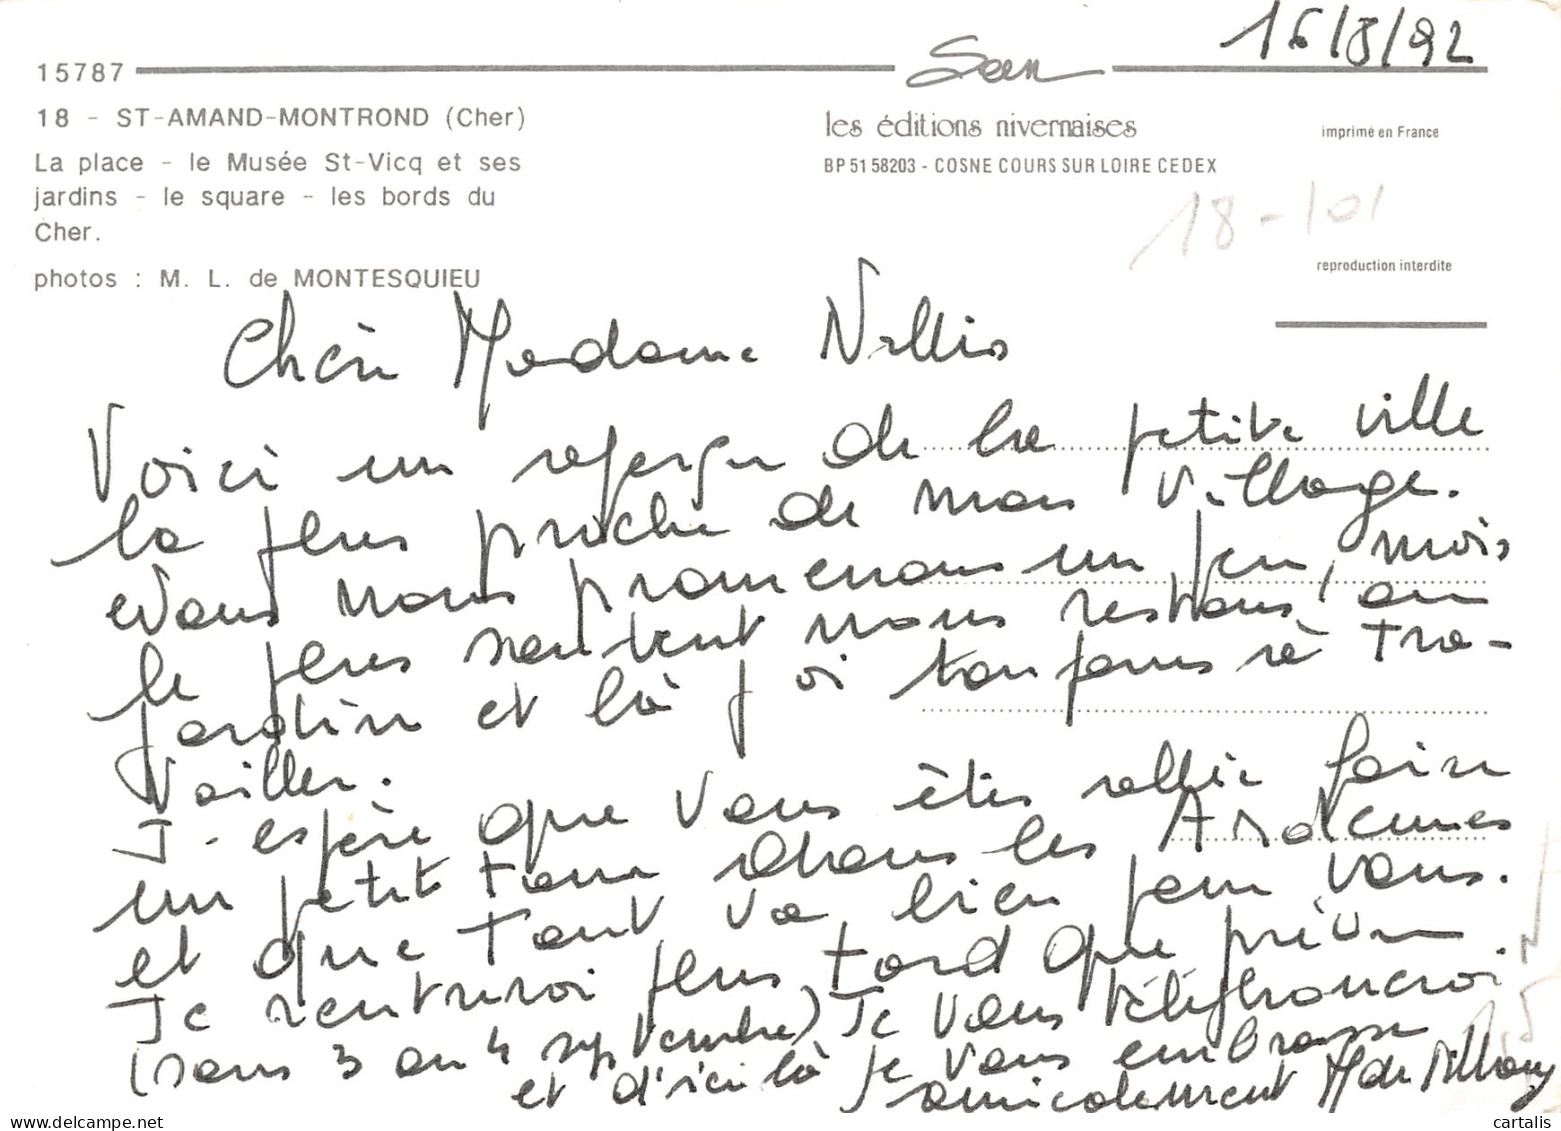 16/8/92
15787
18 - ST-AMAND-MONTROND (Cher)
La place - le Musée St-Vicq et ses
jardins - le square - les bords du
Cher.
photos : M. L. de MONTESQUIEU
les éditions nivernaises
BP 51 58203 - COSNE COURS SUR LOIRE CEDEX
imprimé en France
18-101
reproduction interdite
Chère Madame
Voici un aperçu de la petite ville
la plus proche de mon village.
Nous nous promenons un peu, mais
le plus souvent nous restons au
jardin et là j'ai toujours à tra-
vailler.
J'espère que vous êtes allée faire
un petit tour dans les Ardennes
et que tout va bien pour vous.
Je rentrerai plus tard que prévu
(sans 3 ou 4 septembre) Je vous téléphonerai.
et d'ici là je vous embrasse
amicalement
cartalis
delcampe.net